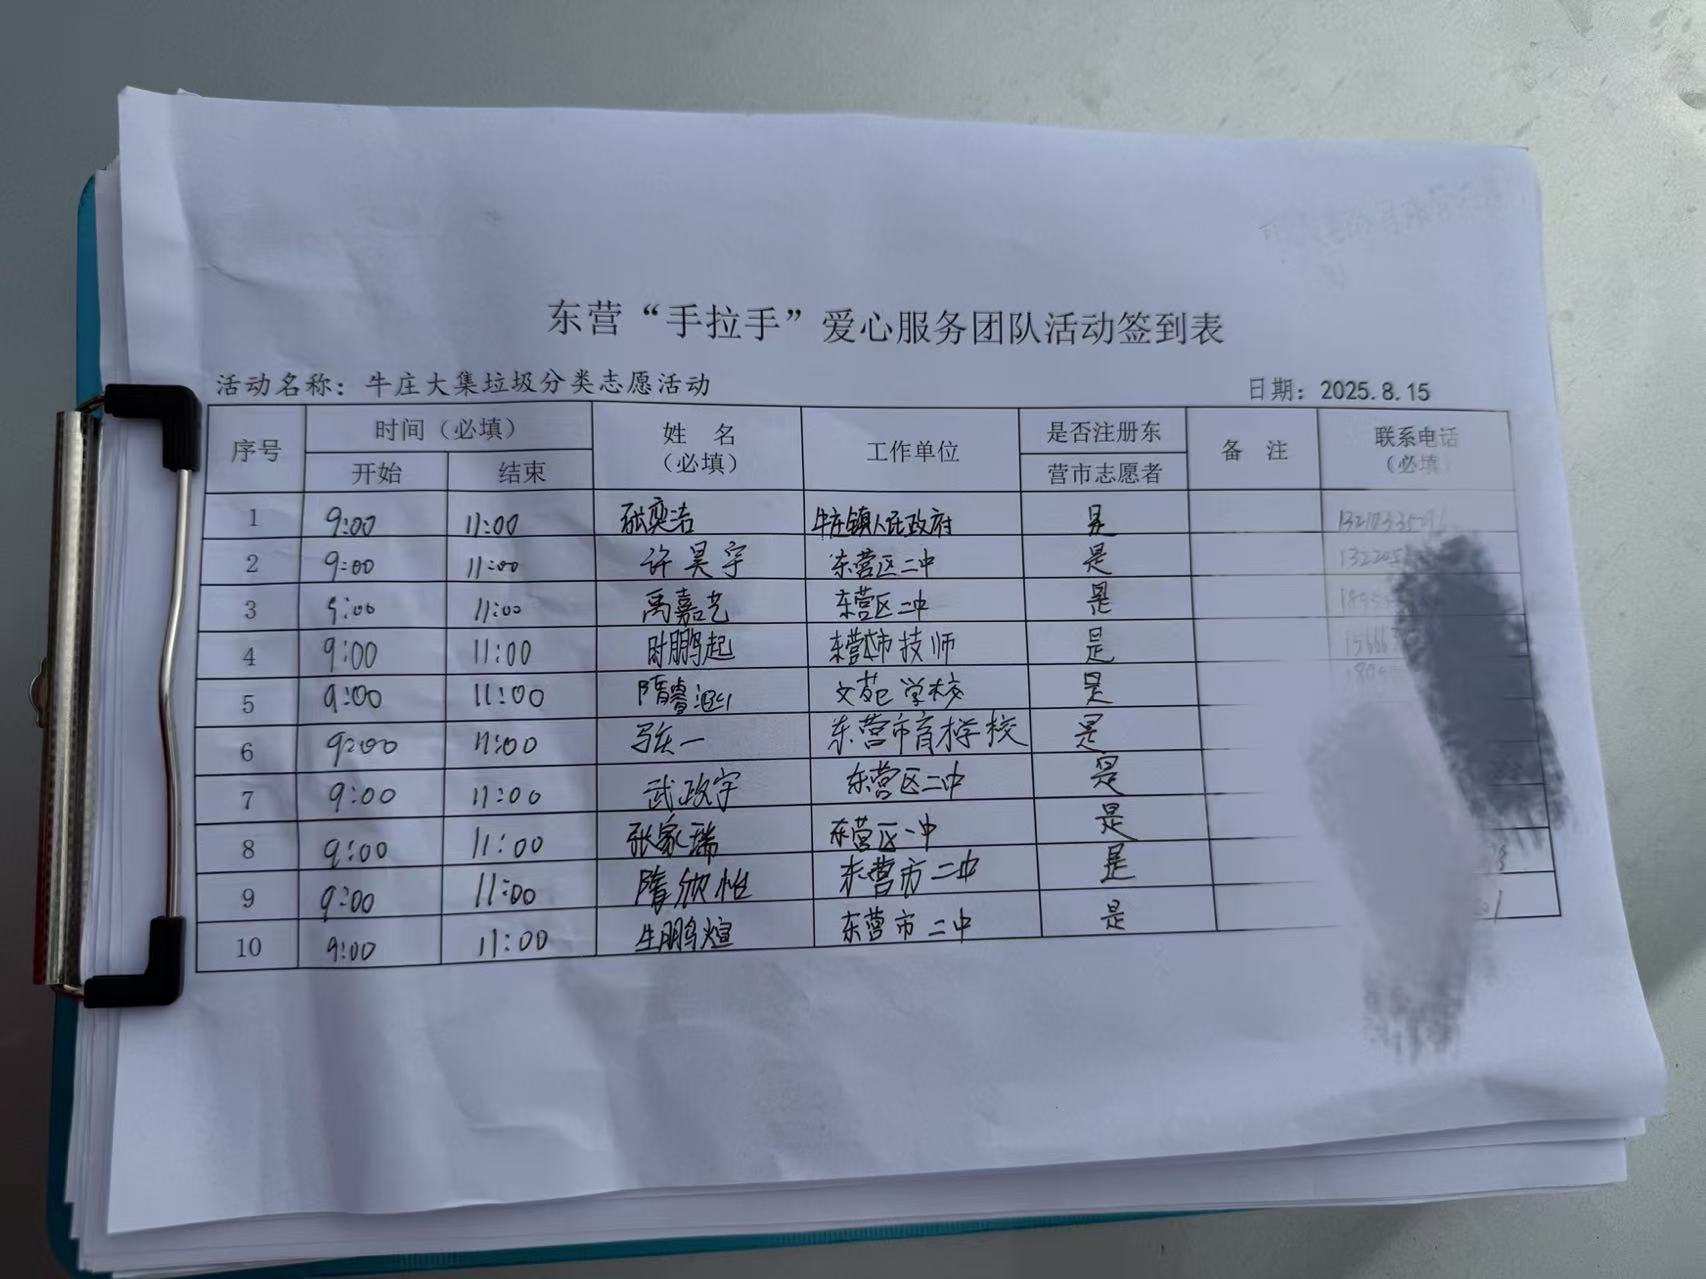 东营“手拉手”爱心服务团队活动签到表
活动名称：牛庄大集垃圾分类志愿活动 日期：2025.8.15
序号 时间（必填） 姓 名（必填） 工作单位 是否注册东营市志愿者 备 注 联系电话（必填）
开始 结束
1 9:00 11:00 张奕洁 牛庄镇人民政府 是
2 9:00 11:00 许昊宇 东营区二中 是
3 9:00 11:00 禹嘉艺 东营区二中 是
4 9:00 11:00 尉鹏起 东营市技师 是
5 9:00 11:00 隋睿 文苑学校 是
6 9:00 11:00 一 东营市育才学校 是
7 9:00 11:00 武政宇 东营区二中 是
8 9:00 11:00 张家瑞 东营区一中 是
9 9:00 11:00 隋欣怡 东营市二中 是
10 9:00 11:00 生鹏煊 东营市二中 是